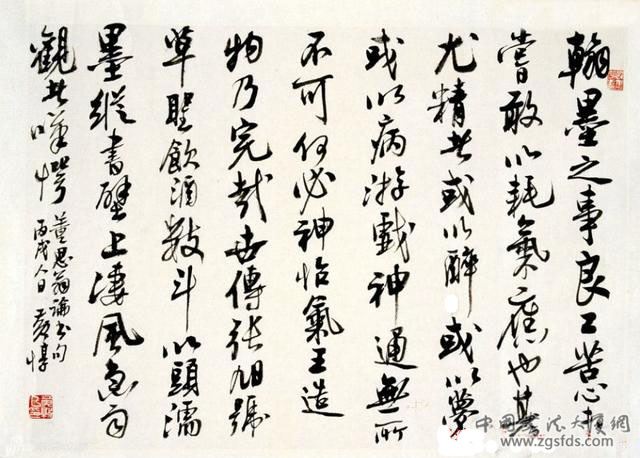 翰墨之事良工苦心未
嘗敢以耗氣應也其
尤精者或以醉或以夢
或以病游戲神通無所
不可何必神怡氣王造
物乃完哉世傳張旭號
草聖飲酒數斗以頭濡
墨縱書壁上淒風急雨
觀者嘆愕
董思翁論書句
丙戌人日 黃惇
中國書法大廈網
www.zgsfds.com